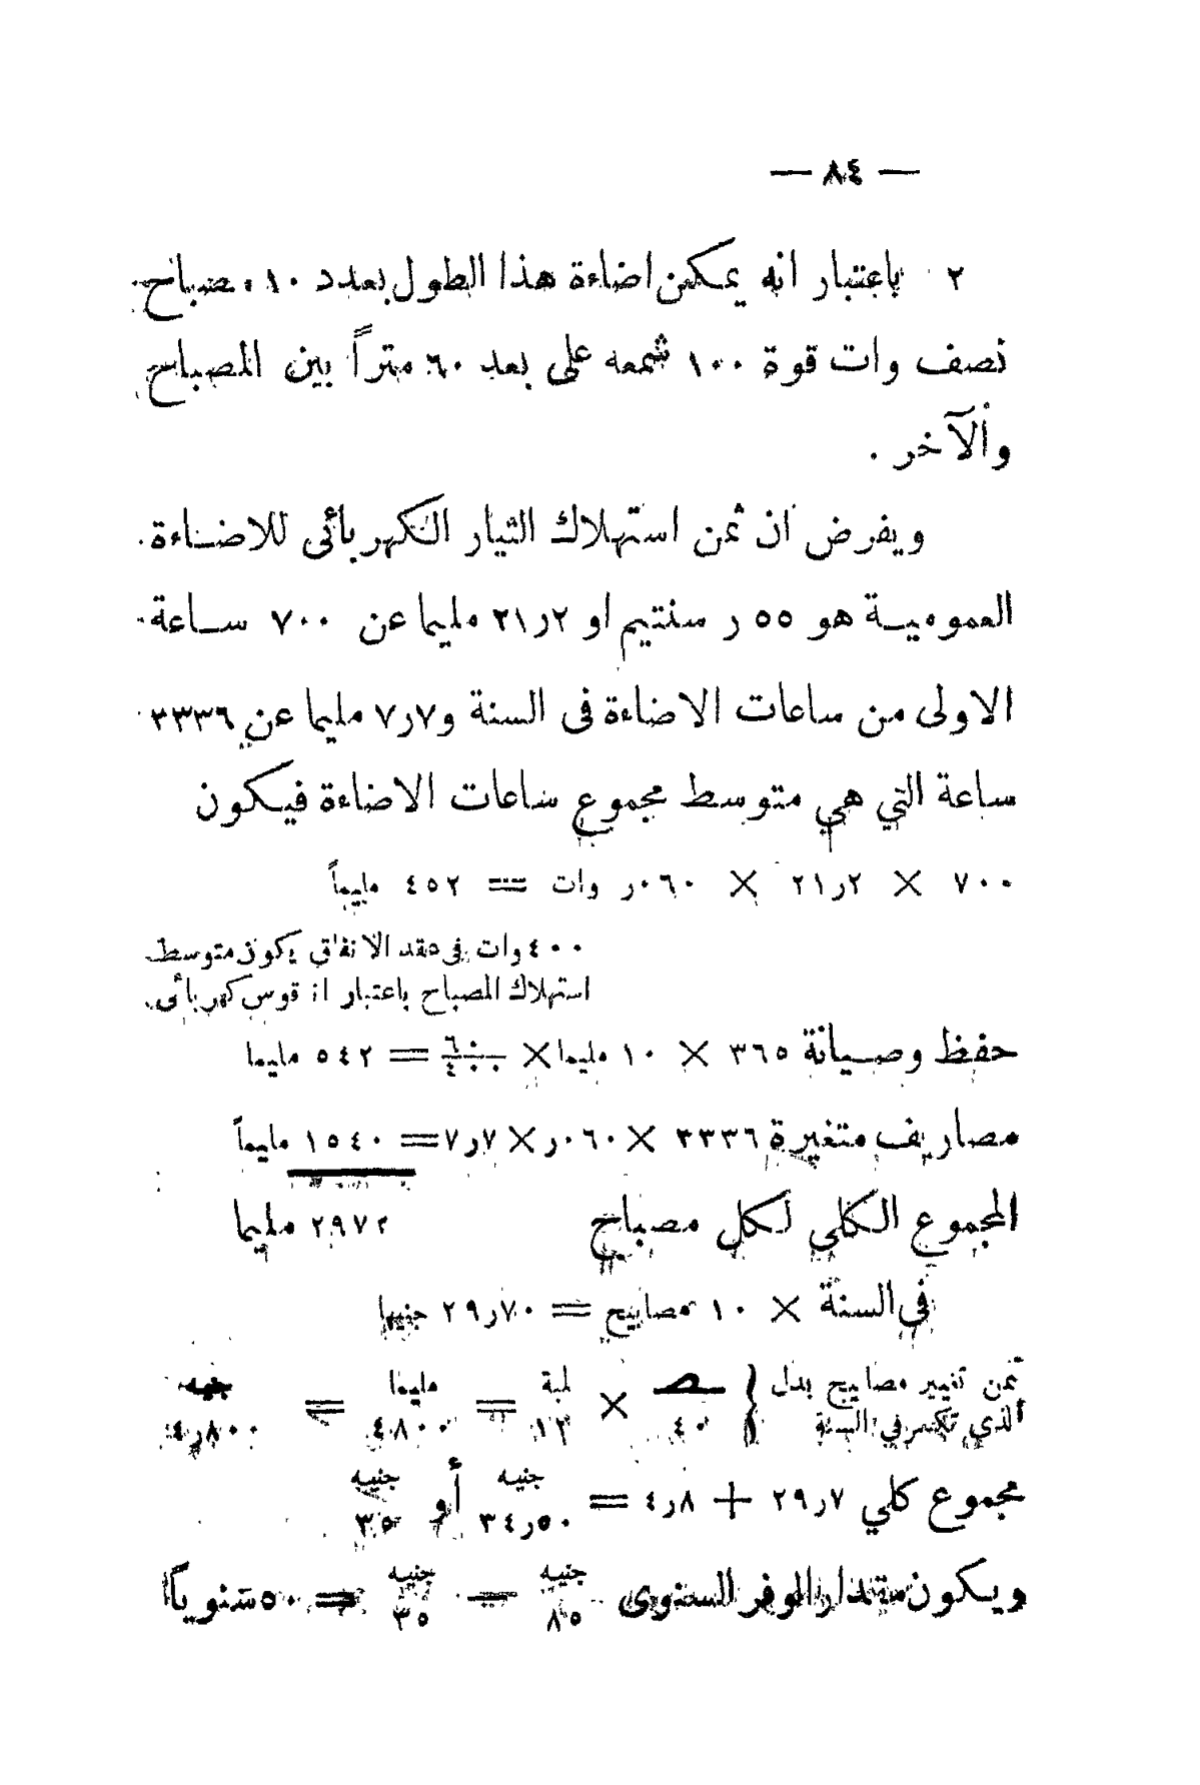 — ٨٤ —
٢ باعتبار انه يمكن اضاءة هذا الطول بعدد ١٠ مصباح
نصف وات قوة ١٠٠ شمعه على بعد ٦٠ متراً بين المصباح
والآخر .
ويفرض ان ثمن استهلاك التيار الكهربائى للاضاءة
العمومية هو ٥٥ ر سنتيم او ٢ر٢١ مليما عن ٧٠٠ ساعة
الاولى من ساعات الاضاءة فى السنة و٧ر٧ مليما عن ٣٣٣٦
ساعة التي هي متوسط مجموع ساعات الاضاءة فيكون
٧٠٠ × ٢ر٢١ × ٠٦٠ر وات = ٤٥٢ مليماً
٤٠٠ وات فى عقد الاتفاق يكون متوسط
استهلاك المصباح باعتبار ان قوس كهربائى
حفظ وصيانة ٣٦٥ × ١٠ مليما × ٦٠/٤٠٠ = ٥٤٢ مليما
مصاريف متغيرة ٣٣٣٦ × ٠٦٠ر × ٧ر٧ = ١٥٤٠ مليماً
المجموع الكلي لكل مصباح ٢٩٧٢ مليما
فى السنة × ١٠ مصابيح = ٧٠ر٢٩ جنيها
ثمن تغيير مصابيح بدل { × لمبة = مليما = جنيه
الذي تكسر في السنة ٤٠ ١٢ ٤٨٠٠ ٨٠٠ر٤
مجموع كلي ٧ر٢٩ + ٨ر٤ = ٥٠ر٣٤ جنيه أو ٣٥ جنيه
ويكون مقدار الوفر السنوى ٨٥ جنيه — ٣٥ جنيه = ٥٠ سنوياً